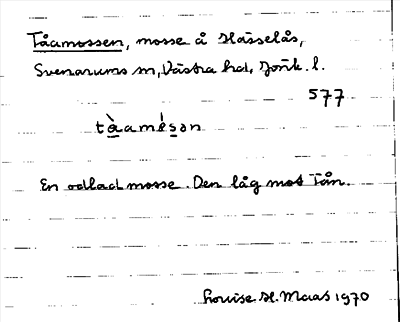 Tåamossen, mosse å Hässelås,
Svenarums sn, Västra hd, Jönk. l.
577
tàamésən
En odlad mosse. Den låg mot Tån.
Louise H. Maas 1970